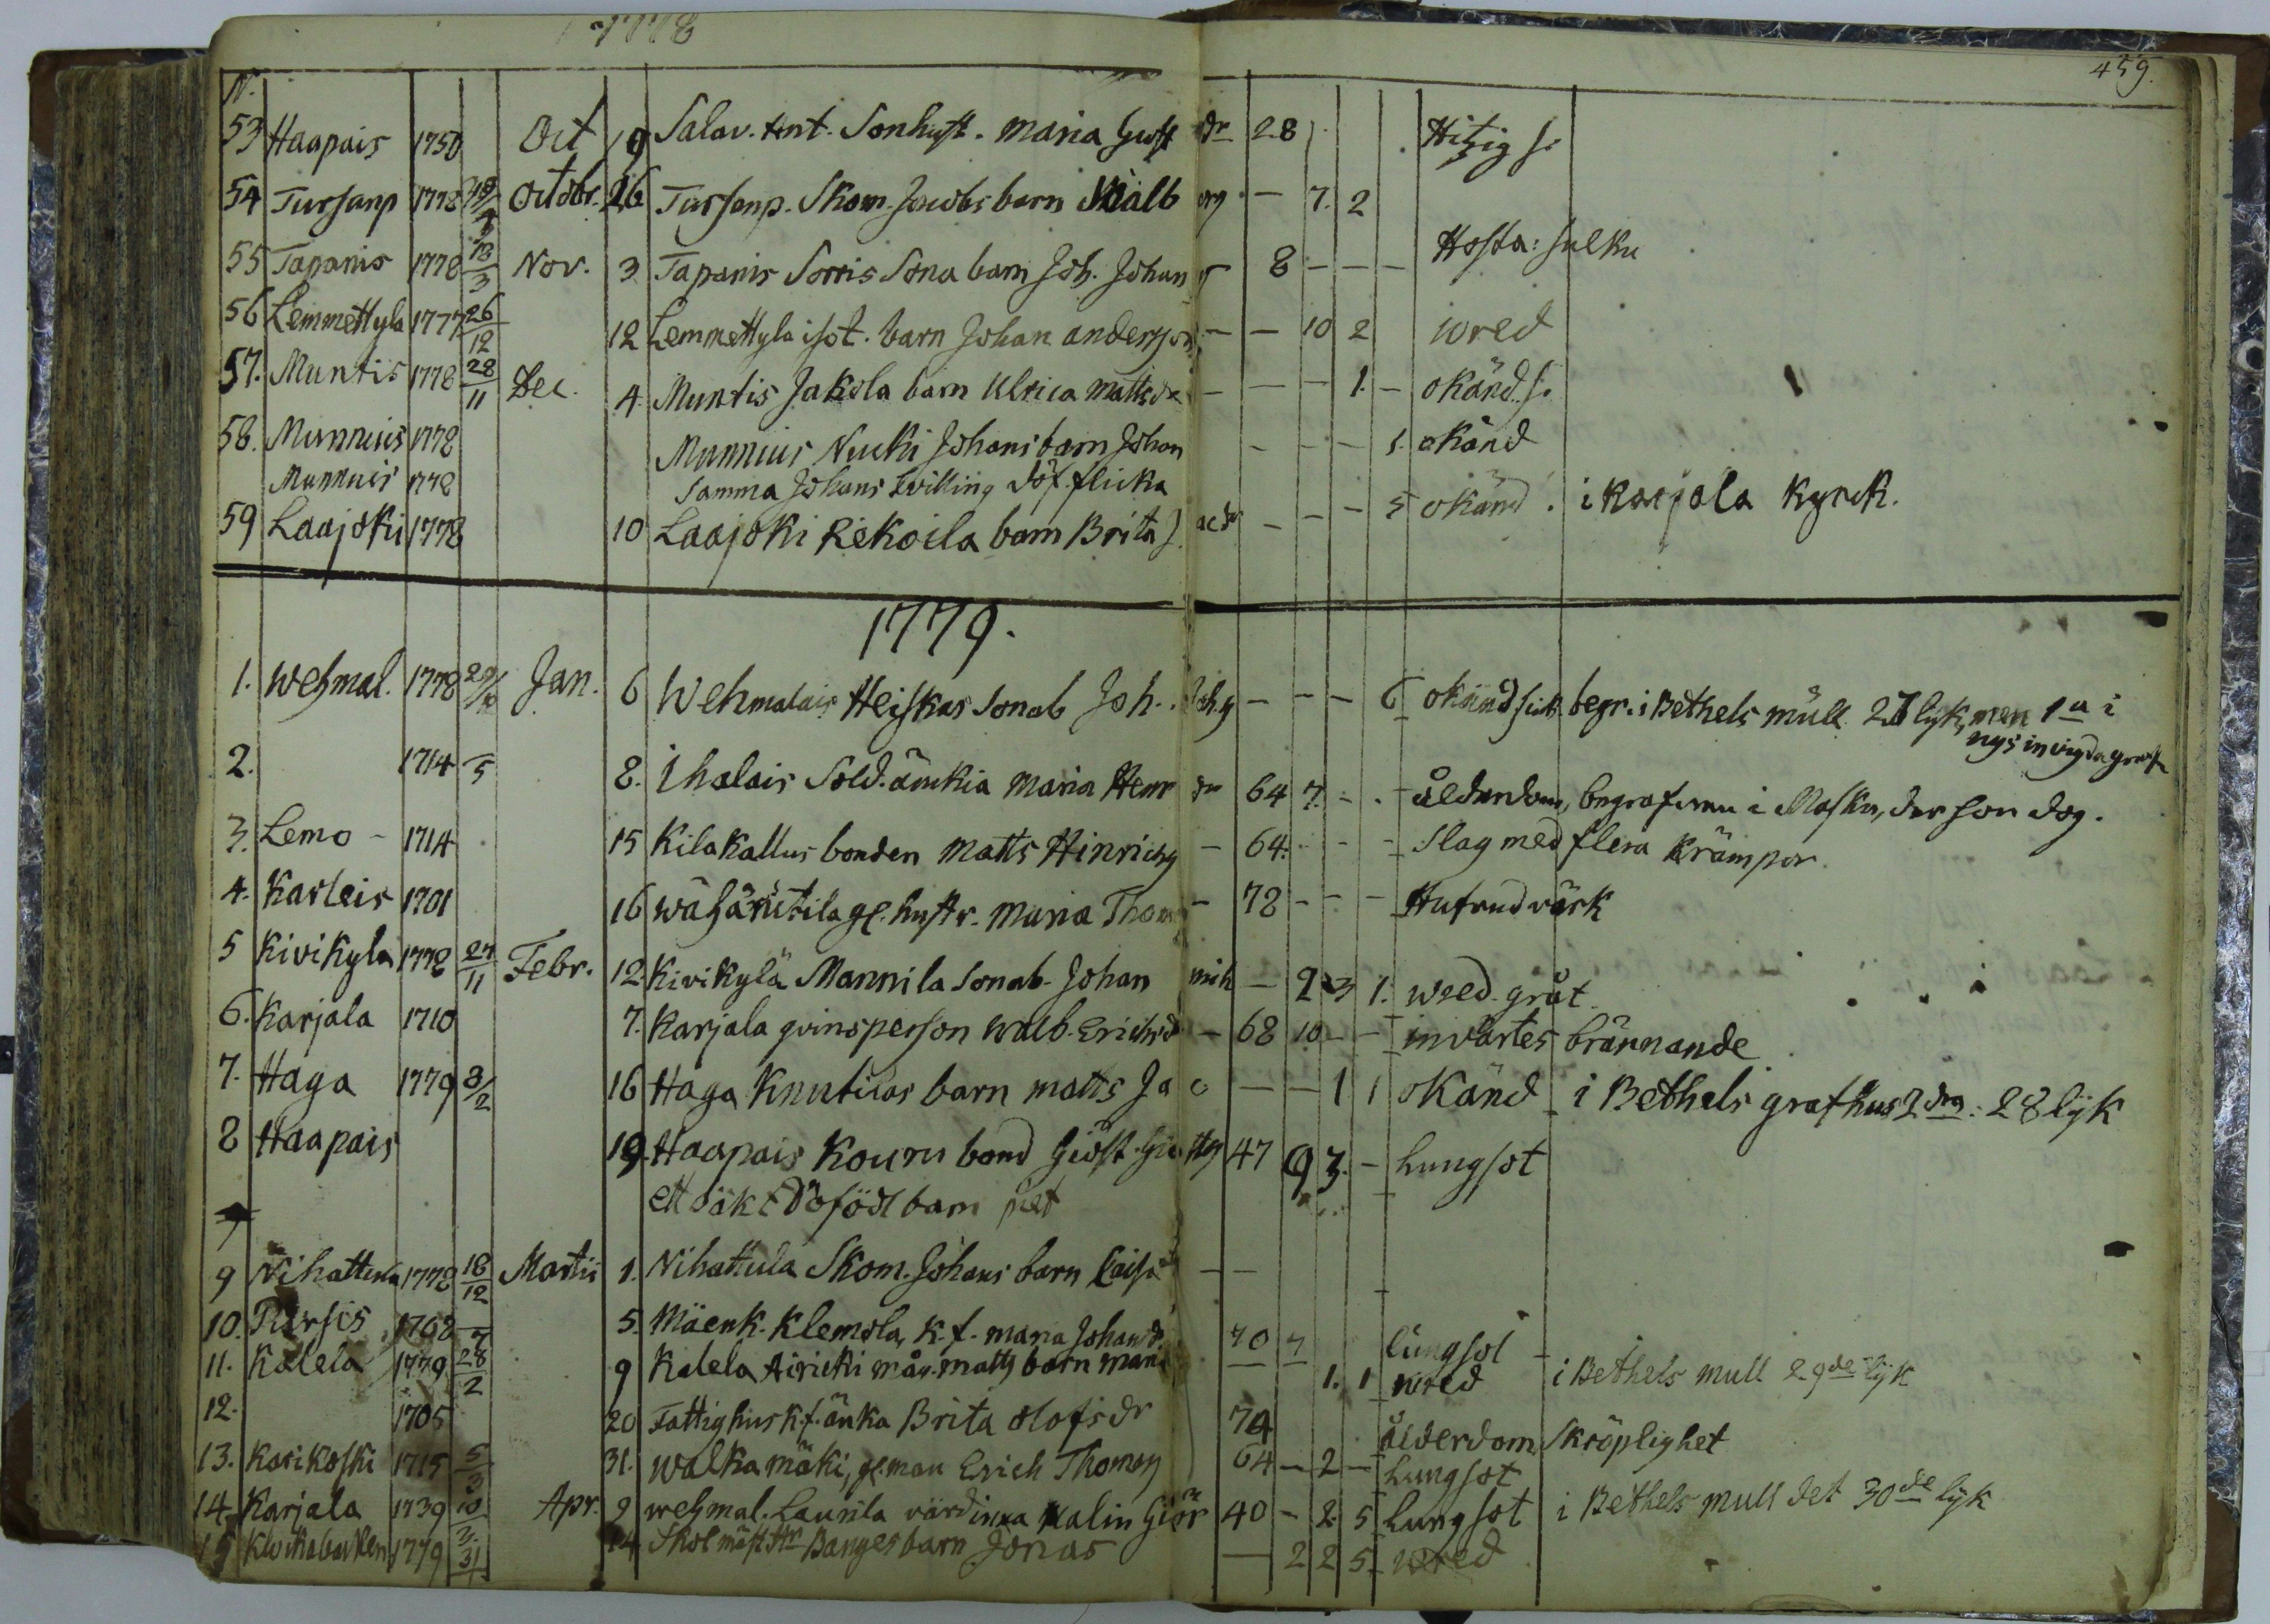 1778
459.
N.
53 Haapais 1750 Oct 19 Salav. Ant. Sonhust. Maria Gust dr 28 Hitzig s:
54 Tursanp 1778 Octobr. 26 Tursanp. Skom. Jacobs barn Walb org - 7. 2
55 Tapanis 1778 13/3 Nov. 3 Tapanis Sorris Sona barn Joh. Johan 8 - - - Hosta: julku
56 Lemmettyla 1777 26/12 12 Lemmettyla isot. barn Johan andersson - - 10 2 wred
57. Muntis 1778 28/11 Dec. 4. Muntis Jakola barn Ulrica mattsdr - - - 1. - okänd. s:
58. Munnuis 1778 Munnuis Nucki Johans barn Johan - - - 1. okänd
Munnuis 1778 Samma Johans twilling döf. flicka
59 Laajoki 1778 10 Laajoki Rekoila barn Brita J. acdr - - - 5 okänd. i karjala kyrck.
1779.
1. Wehmal. 1778 29/10 Jan. 6 Wehmalais Heiskas Sonab Joh. Joh.g - - - 6 okänd siuk begr. i Bethels mull 27 lyk, men 1a i
nys invigda graf
2. 1714 5 8. Ihalais Sold. änkia Maria Henr dr 64 7. - - ålderdom, begrafven i Masku, der hon dog.
3. Lemo - 1714 15 Kilakallus bonden Matts Hinrichs - 64. - - - Slag med flera Krämpor.
4. Karleis 1701 16 wähärutila gl. hustr. Maria Thom - 78 - - - Hufvudvärk
5 Kivikyla 1778 27/11 Febr. 12. Kivikylä Mannila Sonab. Johan mich - 2 3 1. wred. gråt
6. Karjala 1710 7. Karjala qvinsperson Walb. Erichsd - 68 10 - - invärtes brännande
7. Haga 1779 3/2 16 Haga Knutilas barn matts Ja c - - 1 1 okänd i Bethels grafhus 2dra: 28 lyk
8 Haapais 19. Haapais Kouru bond Giöst. Giö stg 47 9 3. - Lungsot
ett oäkt döfödt barn
9 Nihattula 1778 18/12 Martii 1. Nihattula Skom. Johans barn Caisa - -
10. Pursis 1708 5. Mäenk. Klemola, k. f. maria Johansdr 70 7 lungsot
11. Kalela 1779 28/2 9 Kalela Airicki måg. matts barn maria 1. 1 wred i Bethels mull 29de lyk
12. 1705 20 Fattighusk. f. änka Brita Olofsdr 74 ålderdom skröplighet
13. Karikoski 1715 5/3 31. Walkamäki, gl. man Erich Thomeg 64 - 2 - Lungsot
14. Karjala 1739 10/3 Apr. 9 wehmal. Laurila värdinna Malin Giör 40 - 2 5 Lungsot i Bethels mull det 30de lyk
15 Klockabacken 1779 31/1 14 Skolmäst. Hr Banges barn Jonas - 2 2 5 wred